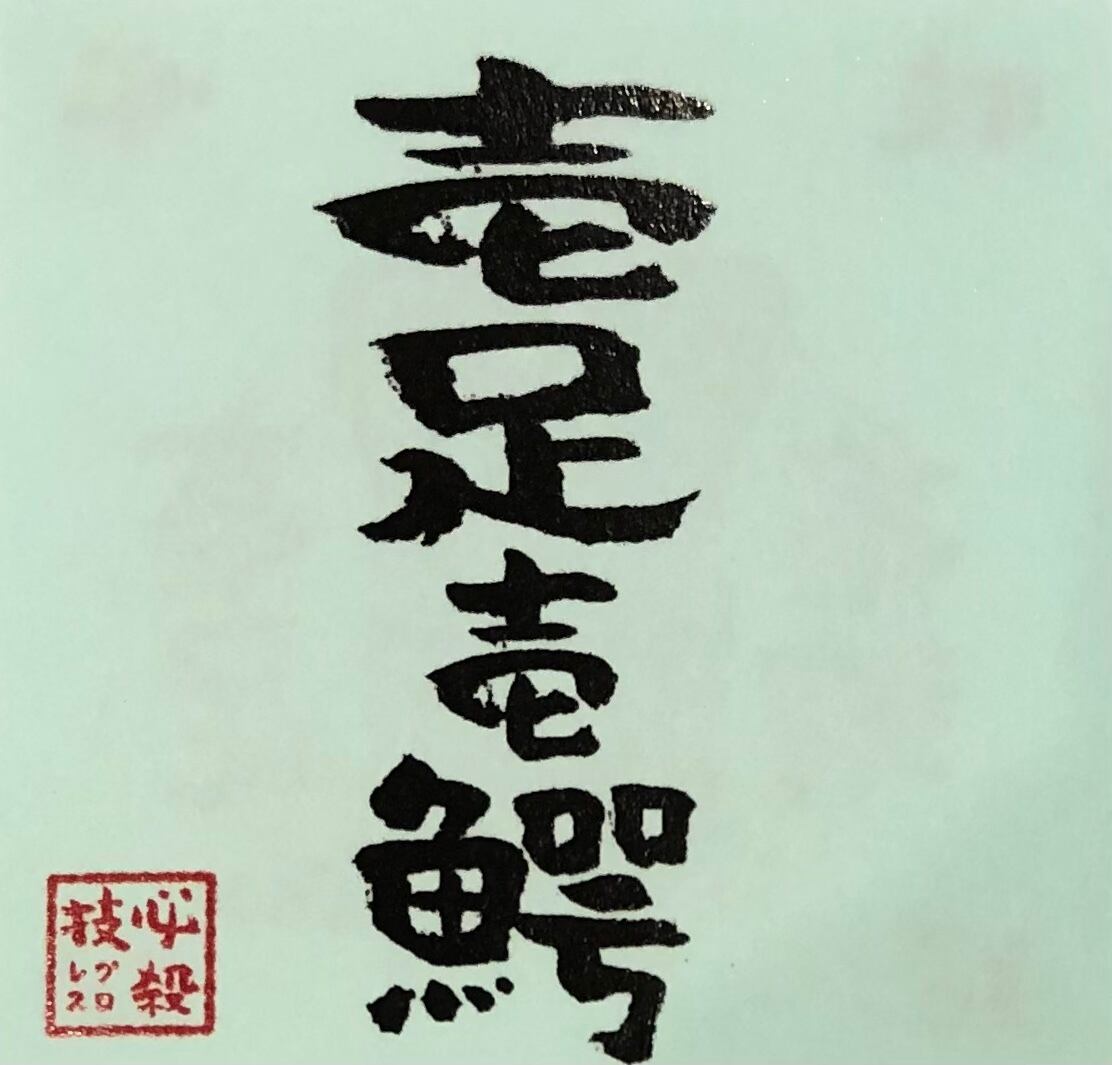 壱足壱鰐
必殺
技
プロ
レス